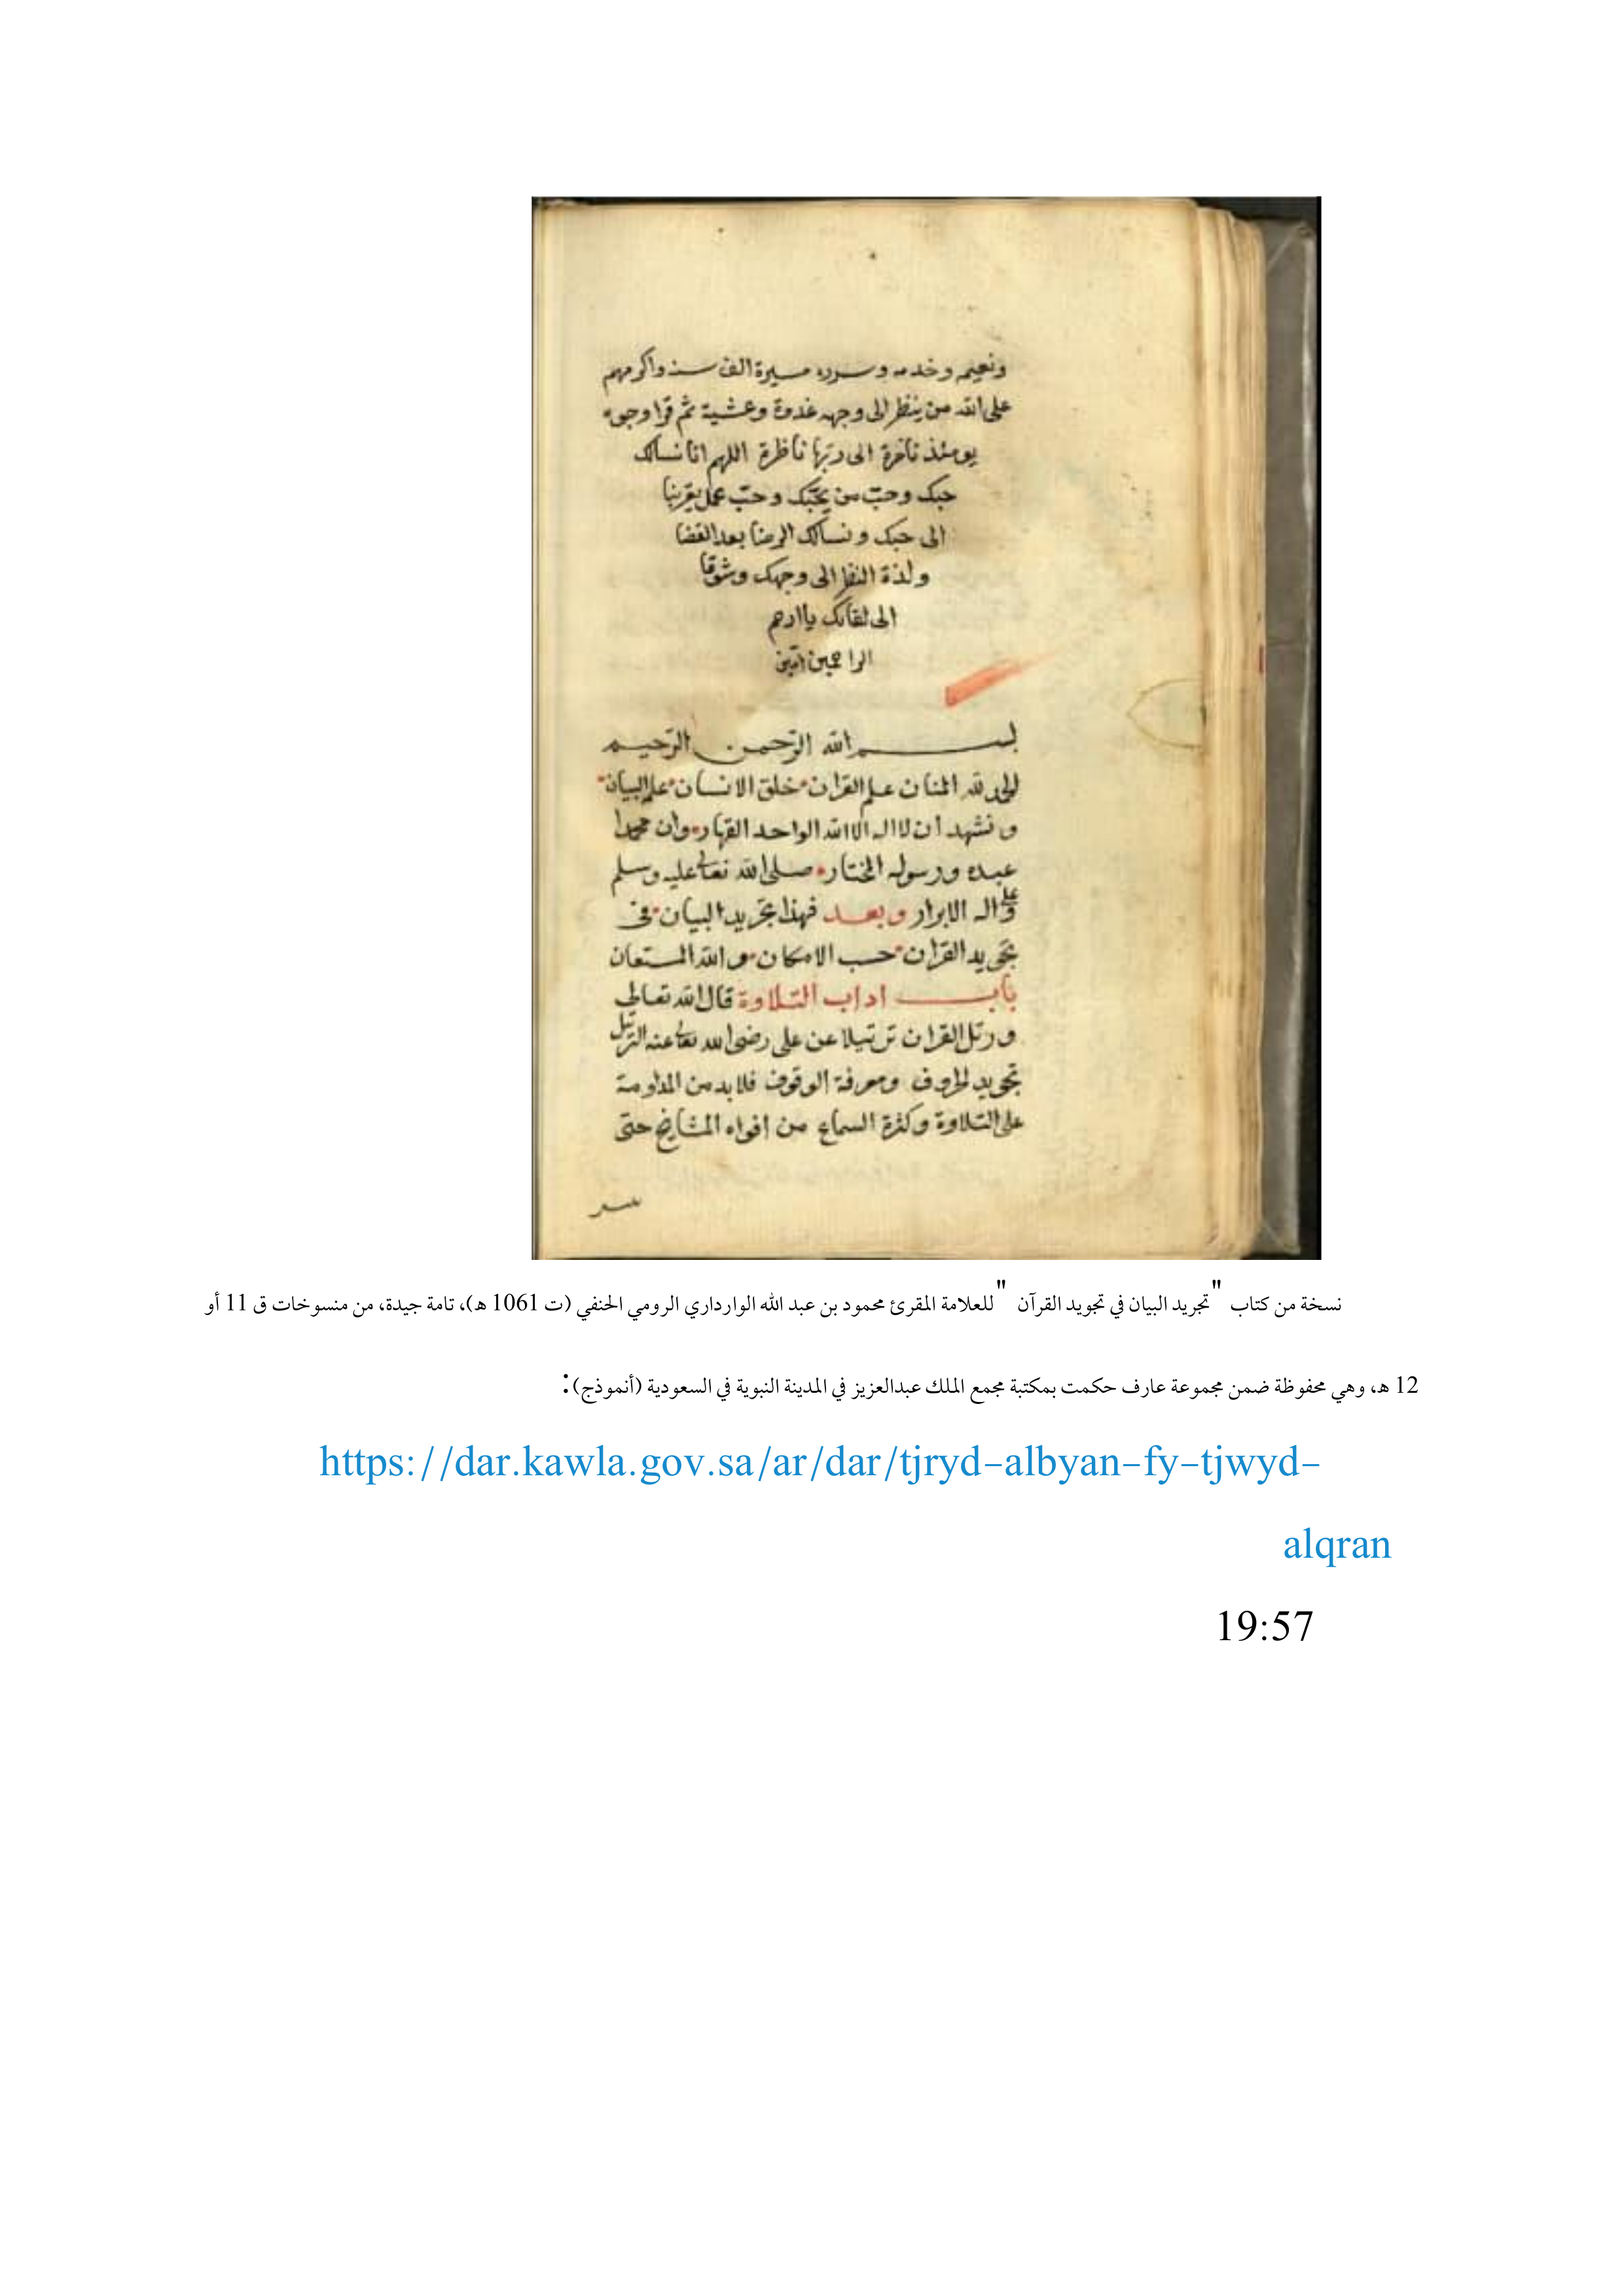 ونعيمه وخدمه وسرره مسيرة الف سنه واكرمهم
على الله من ينظر الى وجهه غدوة وعشية ثم قرا وجوه
يومئذ ناضرة الى ربها ناظرة اللهم انا نسالك
حبك وحبّ من يحبّك وحبّ عمل يقربنا
الى حبك ونسالك الرضا بعد القضا
ولذة النظر الى وجهك وشوقا
الى لقائك ياارحم
الراحمين آمين
بسم الله الرّحمن الرّحيم
الحمد لله المنان علم القران خلق الانسان علمه البيان
ونشهد أن لا اله الا الله الواحد القهار وان محمدا
عبده ورسوله المختار صلى الله تعالى عليه وسلم
وعلى اله الابرار وبعد فهذا تجريد البيان فى
تجويد القران حسب الامكان والله المستعان
باب اداب التلاوة قال الله تعالى
ورتل القران ترتيلا عن على رضى الله تعالى عنه الترتيل
تجويد الحروف ومعرفة الوقوف فلا بد من المداومة
على التلاوة وكثرة السماع من افواه المشايخ حتى
نسخة من كتاب "تجريد البيان في تجويد القرآن" للعلامة المقرئ محمود بن عبد الله الوارداري الرومي الحنفي (ت 1061 ه)، تامة جيدة، من منسوخات ق 11 أو
12 ه، وهي محفوظة ضمن مجموعة عارف حكمت بمكتبة مجمع الملك عبدالعزيز في المدينة النبوية في السعودية (أنموذج):
https://dar.kawla.gov.sa/ar/dar/tjryd-albyan-fy-tjwyd-
alqran
19:57